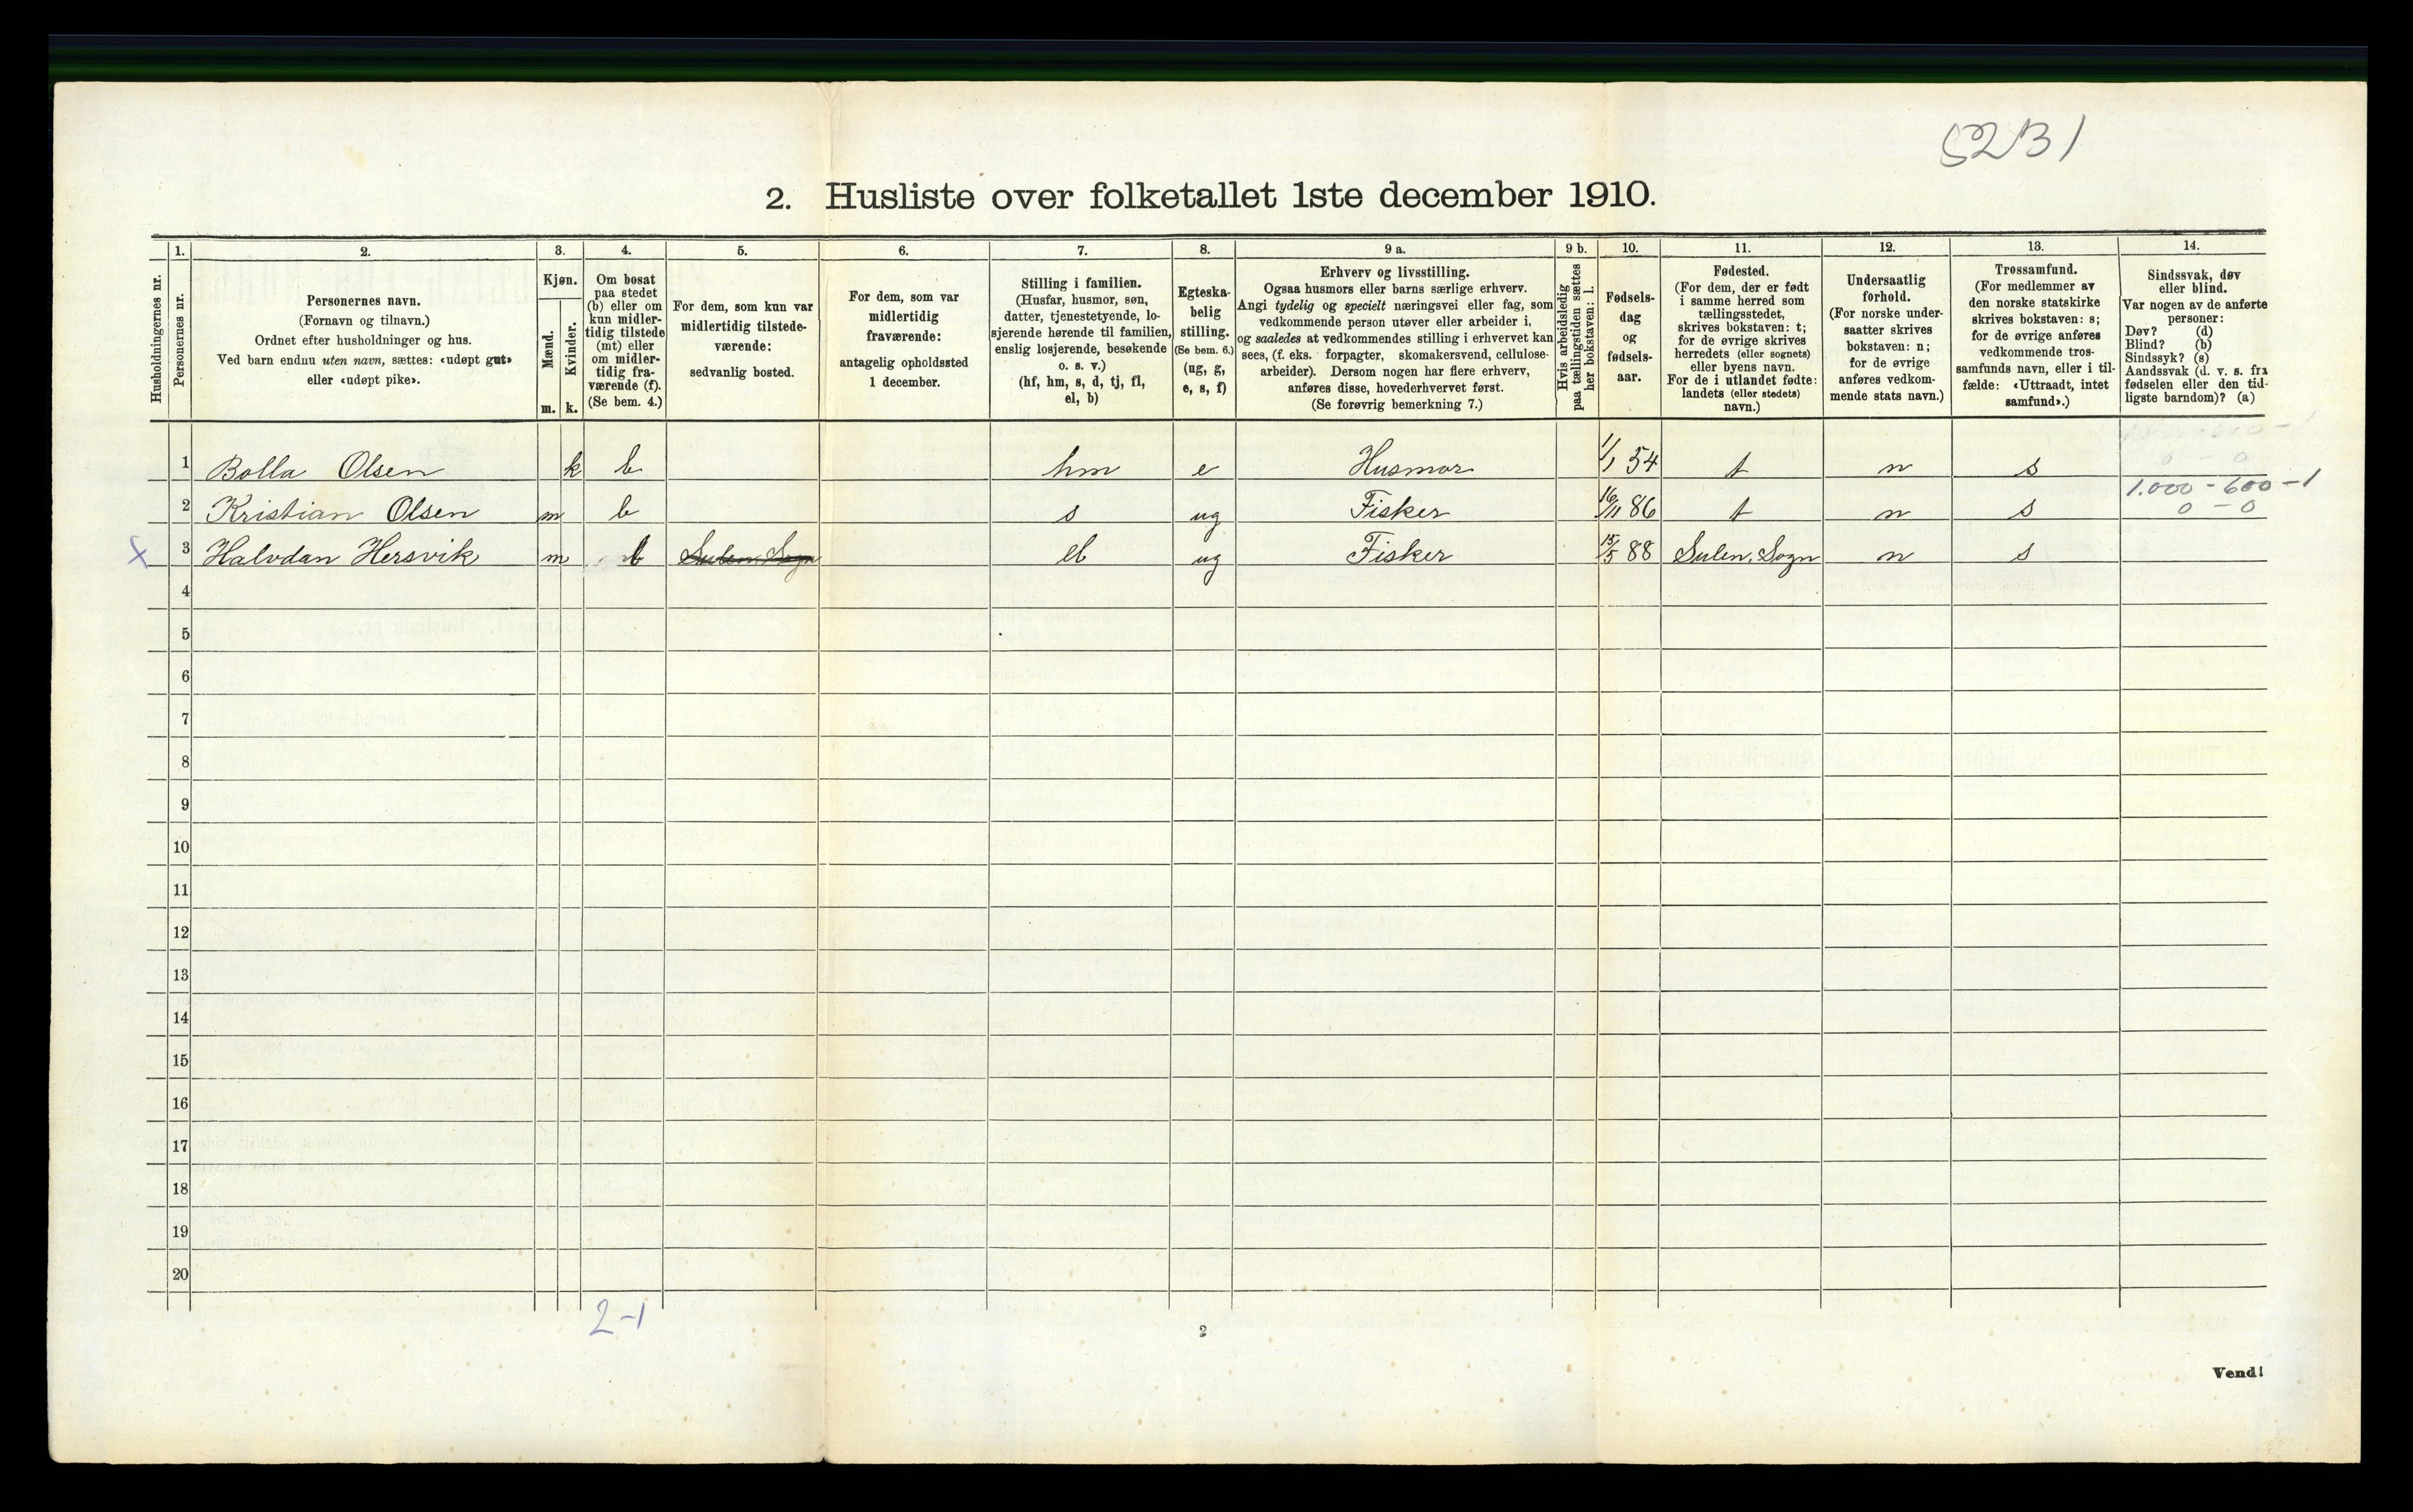 5231
2. Husliste over folketallet 1ste december 1910.
Husholdningernes nr.
1.
Personernes nr.
2.
Personernes navn.
(Fornavn og tilnavn.)
Ordnet efter husholdninger og hus.
Ved barn endnu uten navn, sættes: «udøpt gut»
eller «udøpt pike».
3.
Kjøn.
Mænd.
Kvinder.
m. k.
4.
Om bosat
paa stedet
(b) eller om
kun midler-
tidig tilstede
(mt) eller
om midler-
tidig fra-
værende (f).
(Se bem. 4.)
5.
For dem, som kun var
midlertidig tilstede-
værende:
sedvanlig bosted.
6.
For dem, som var
midlertidig
fraværende:
antagelig opholdssted
1 december.
7.
Stilling i familien.
(Husfar, husmor, søn,
datter, tjenestetyende, lo-
sjerende hørende til familien,
enslig losjerende, besøkende
o. s. v.)
(hf, hm, s, d, tj, fl,
el, b)
8.
Egteska-
belig
stilling.
(Se bem. 6.)
(ug, g,
e, s, f)
9 a.
Erhverv og livsstilling.
Ogsaa husmors eller barns særlige erhverv.
Angi tydelig og specielt næringsvei eller fag, som
vedkommende person utøver eller arbeider i,
og saaledes at vedkommendes stilling i erhvervet kan
sees, (f. eks. forpagter, skomakersvend, cellulose-
arbeider). Dersom nogen har flere erhverv,
anføres disse, hovederhvervet først.
(Se forøvrig bemerkning 7.)
9 b.
Hvis arbeidsledig
paa tællingstiden sættes
her bokstaven: l.
10.
Fødsels-
dag
og
fødsels-
aar.
11.
Fødested.
(For dem, der er født
i samme herred som
tællingsstedet,
skrives bokstaven: t;
for de øvrige skrives
herredets (eller sognets)
eller byens navn.
For de i utlandet fødte:
landets (eller stedets)
navn.)
12.
Undersaatlig
forhold.
(For norske under-
saatter skrives
bokstaven: n;
for de øvrige
anføres vedkom-
mende stats navn.)
13.
Trossamfund.
(For medlemmer av
den norske statskirke
skrives bokstaven: s;
for de øvrige anføres
vedkommende tros-
samfunds navn, eller i til-
fælde: «Uttraadt, intet
samfund».)
14.
Sindssvak, døv
eller blind.
Var nogen av de anførte
personer:
Døv? (d)
Blind? (b)
Sindssyk? (s)
Aandssvak (d. v. s. fra
fødselen eller den tid-
ligste barndom)? (a)
1 Bolla Olsen k b hm e Husmor 1/1 54 t n s 0 - 0
1.000 - 600 - 1
2 Kristian Olsen m b s ug Fisker 16/11 86 t n s 0 - 0
x 3 Halvdan Hersvik m b Sulen Sogn el ug Fisker 15/5 88 Sulen, Sogn n s
4
5
6
7
8
9
10
11
12
13
14
15
16
17
18
19
20
2-1
2
Vend!